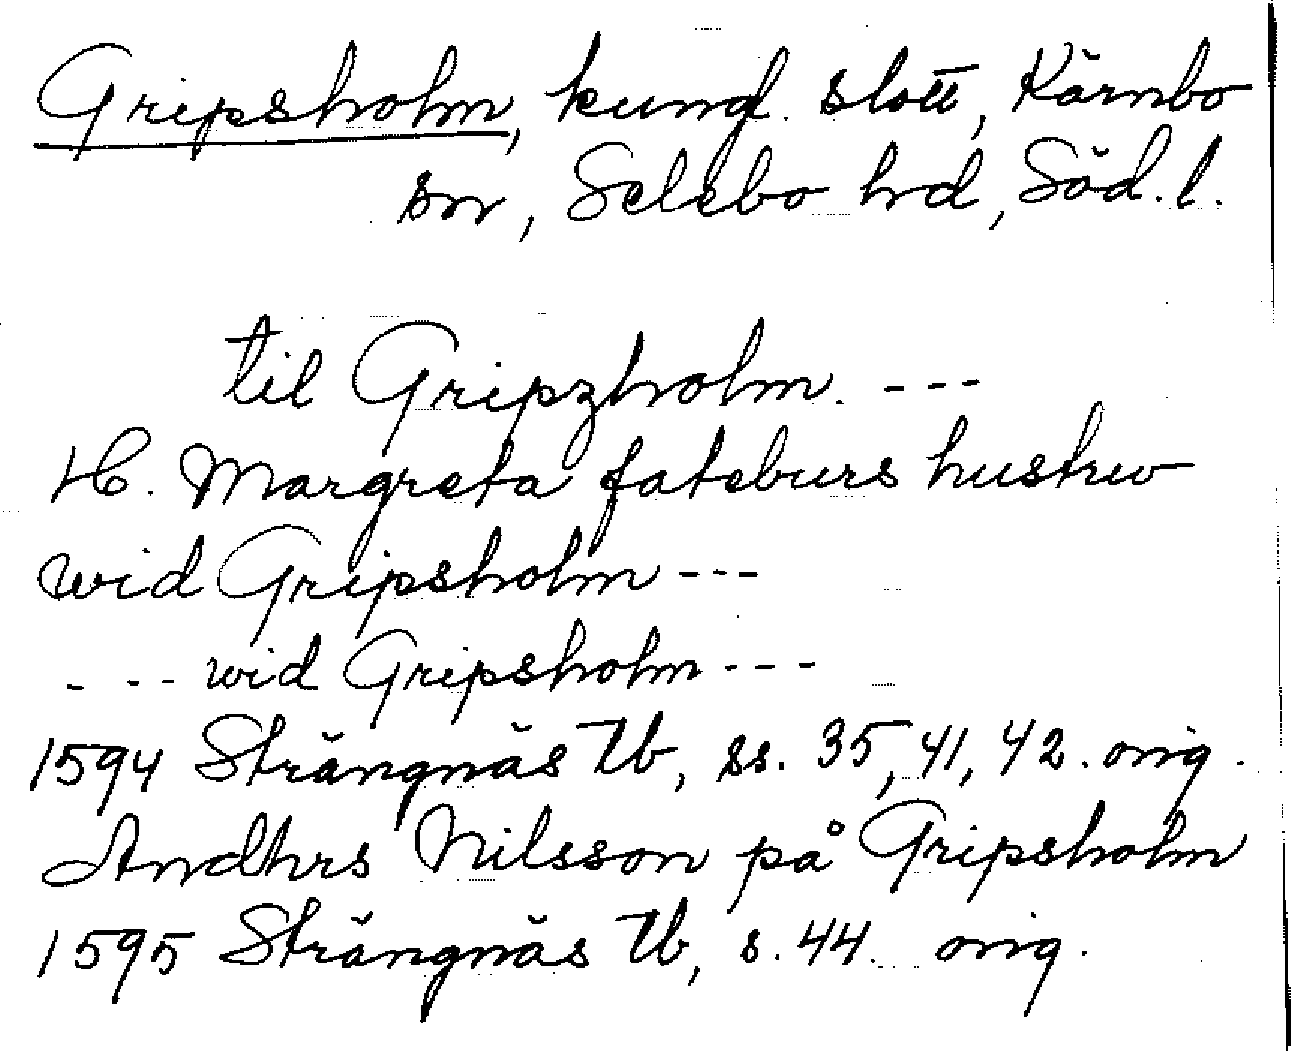 Gripsholm, kungl. slott, Kärnbo
sn, Selebo hd, Söd. l.
til Gripzholm. ---
H. Margreta fateburs hustrw
wid Gripsholm ---
--- wid Gripsholm ---
1594 Strängnäs Tb, ss. 35, 41, 42. orig.
Andhrs Nilsson på Gripsholm
1595 Strängnäs Tb, s. 44. orig.